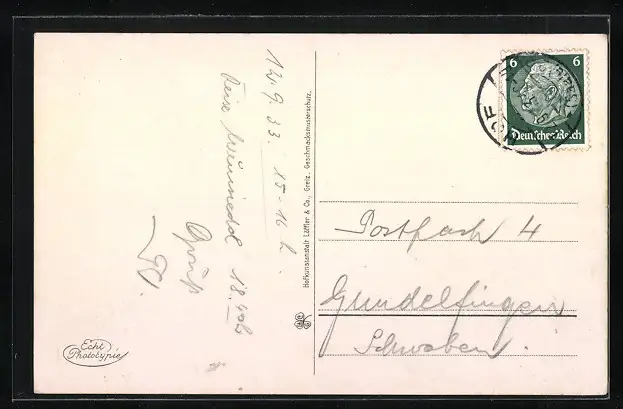 12.9.33. 15-16 h.
18.
Gruß
Hofkunstanstalt Löffler & Co., Greiz. Geschmacksmusterschutz.
6 6
Deutsches Reich
HOF
Postfach 4
Gundelfingen
Schwaben.
Echt
Phototypie